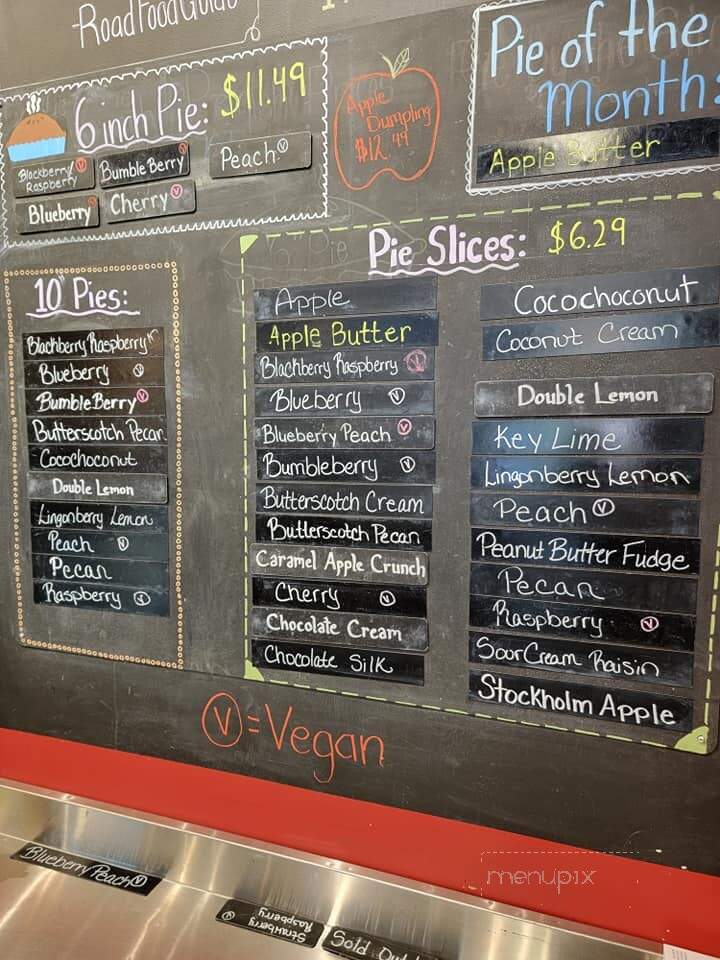 RoadFoodGuide
6 inch Pie: $11.49
Blackberry Raspberry V
Bumble Berry V
Peach V
Blueberry V
Cherry V
Apple
Dumpling
$12.49
Pie of the
Month:
Apple Butter
10 Pies:
Blackberry Raspberry V
Blueberry V
BumbleBerry V
Butterscotch Pecan
Cocochoconut
Double Lemon
Lingonberry Lemon
Peach V
Pecan
Raspberry V
Pie Slices: $6.29
Apple
Apple Butter
Blackberry Raspberry V
Blueberry V
Blueberry Peach V
Bumbleberry V
Butterscotch Cream
Butterscotch Pecan
Caramel Apple Crunch
Cherry V
Chocolate Cream
Chocolate Silk
Cocochoconut
Coconut Cream
Double Lemon
Key Lime
Lingonberry Lemon
Peach V
Peanut Butter Fudge
Pecan
Raspberry V
Sour Cream Raisin
Stockholm Apple
V = Vegan
Blueberry Peach V
Strawberry
Raspberry V
Sold Out
menupix